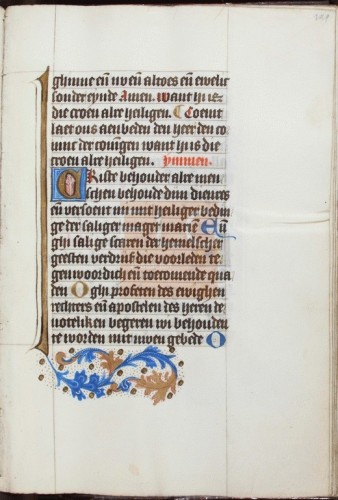 ghinne en̄ nv en̄ altoes en̄ ewelic
sonder eynde Amen. want hi is
die croen alre heiligen. Coemt
laet ons aenbeden den heer den co
ninc der coningen want hi is die
croen alre heiligen. Ymnen.
Criste behouder alre men
schen behoude dijn dienres
en̄ versoent mit heiliger bedin
ge der saliger maget marien En̄
ghi salige scaren der hemelscher
geesten verdrijft die voorleden te
genwoordich en̄ toecomende qua
den O ghi profeten des ewighen
rechters en̄ apostelen des heren de
uoteliken begeren wi behouden
te worden mit uwen gebede O